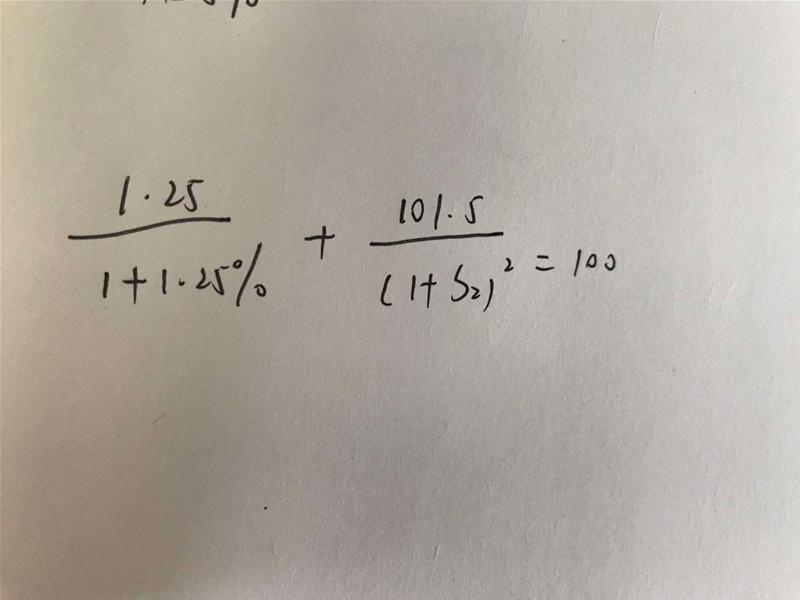 1.25/(1+1.25%) + 101.5/(1+S₂)² = 100